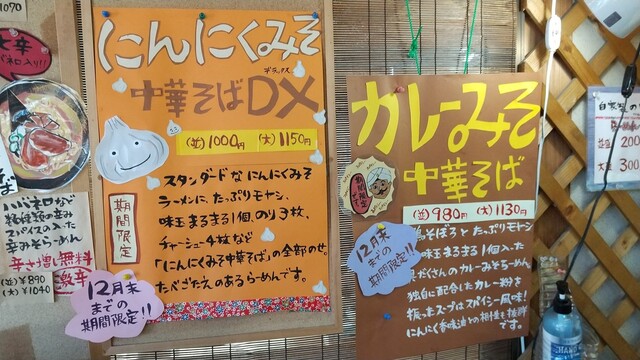 1070
大辛
ハバネロ入り!!
ハバネロなど
スパイスの入った
辛みそらーめん
辛さ増し無料
激辛
(並) ¥890
(大) ¥1040
にんにくみそ
デラックス
中華そばDX
(並) 1000円 (大) 1150円
期間限定
スタンダードなにんにくみそ
ラーメンに、たっぷりモヤシ、
味玉まるまる1個、のり3枚、
チャーシュー4枚など
「にんにくみそ中華そば」の全部のせ。
たべごたえのあるらーめんです。
12月末
までの
期間限定!!
カレーみそ
中華そば
期間限定
(並) 980円 (大) 1130円
そぼろとたっぷりモヤシ
味玉まるまる1個入った
だくさんのカレーみそらーめん
独自に配合したカレー粉を
使ったスープはスパイシー風味!
にんにく香味油との相性も抜群
です。
12月末
までの
期間限定!!
200
300